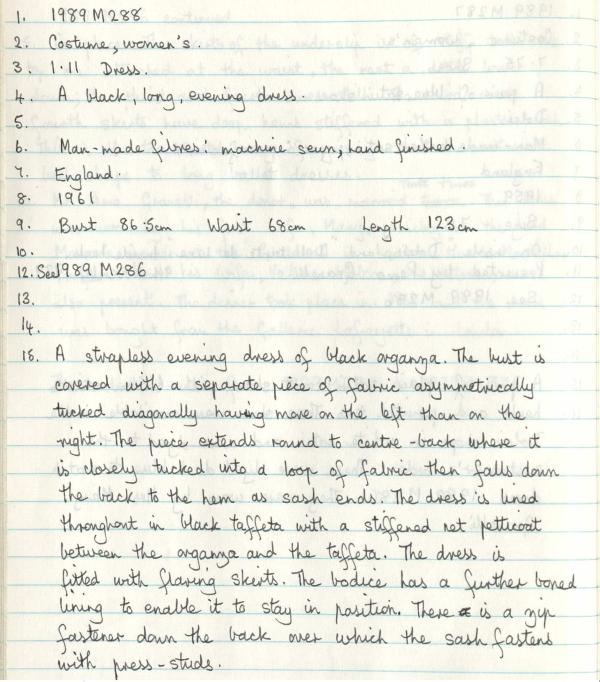 1. 1989 M288
2. Costume, women's.
3. 1.11 Dress.
4. A black, long, evening dress.
5.
6. Man-made fibres: machine sewn, hand finished.
7. England.
8. 1961
9. Bust 86.5cm Waist 68cm Length 123cm
10.
12. See 1989 M286
13.
14.
15. A strapless evening dress of black organza. The bust is
covered with a separate piece of fabric asymmetrically
tucked diagonally having more on the left than on the
right. The piece extends round to centre-back where it
is closely tucked into a loop of fabric then falls down
the back to the hem as sash ends. The dress is lined
throughout in black taffeta with a stiffened net petticoat
between the organza and the taffeta. The dress is
fitted with flaring skirts. The bodice has a further boned
lining to enable it to stay in position. There is a zip
fastener down the back over which the sash fastens
with press-studs.